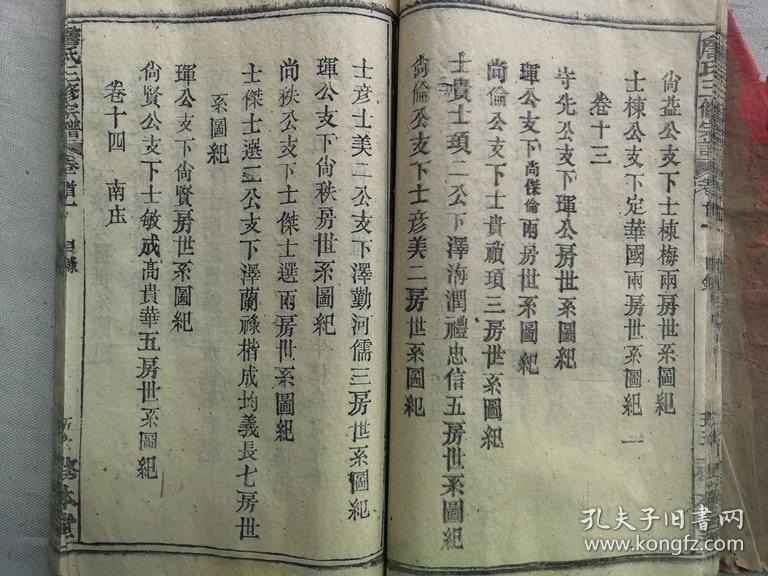 尙益公支下士棟梅兩房世系圖紀
士棟公支下定華國兩房世系圖紀
卷十三
守先公支下琿公房世系圖紀
琿公支下尙傑倫兩房世系圖紀
尙倫公支下士貴頊三房世系圖紀
士貴士頊二公下澤海潤禮忠信五房世系圖紀
尙倫公支下士彥美二房世系圖紀
士彥士美二公支下澤勤河儒三房世系圖紀
琿公支下尙秩房世系圖紀
尙秩公支下士傑士選兩房世系圖紀
士傑士選二公支下澤蘭祿楷成均義長七房世
系圖紀
琿公支下尙賢房世系圖紀
尙賢公支下士敏成高貴華五房世系圖紀
卷十四 南庄
詹氏三修宗譜 卷首一 目錄
孔夫子旧书网
www.kongfz.com